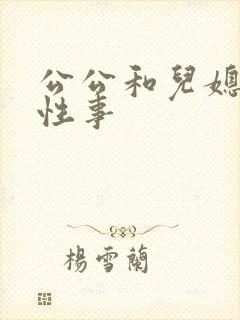 公公和兒媳
性事
楊雪蘭